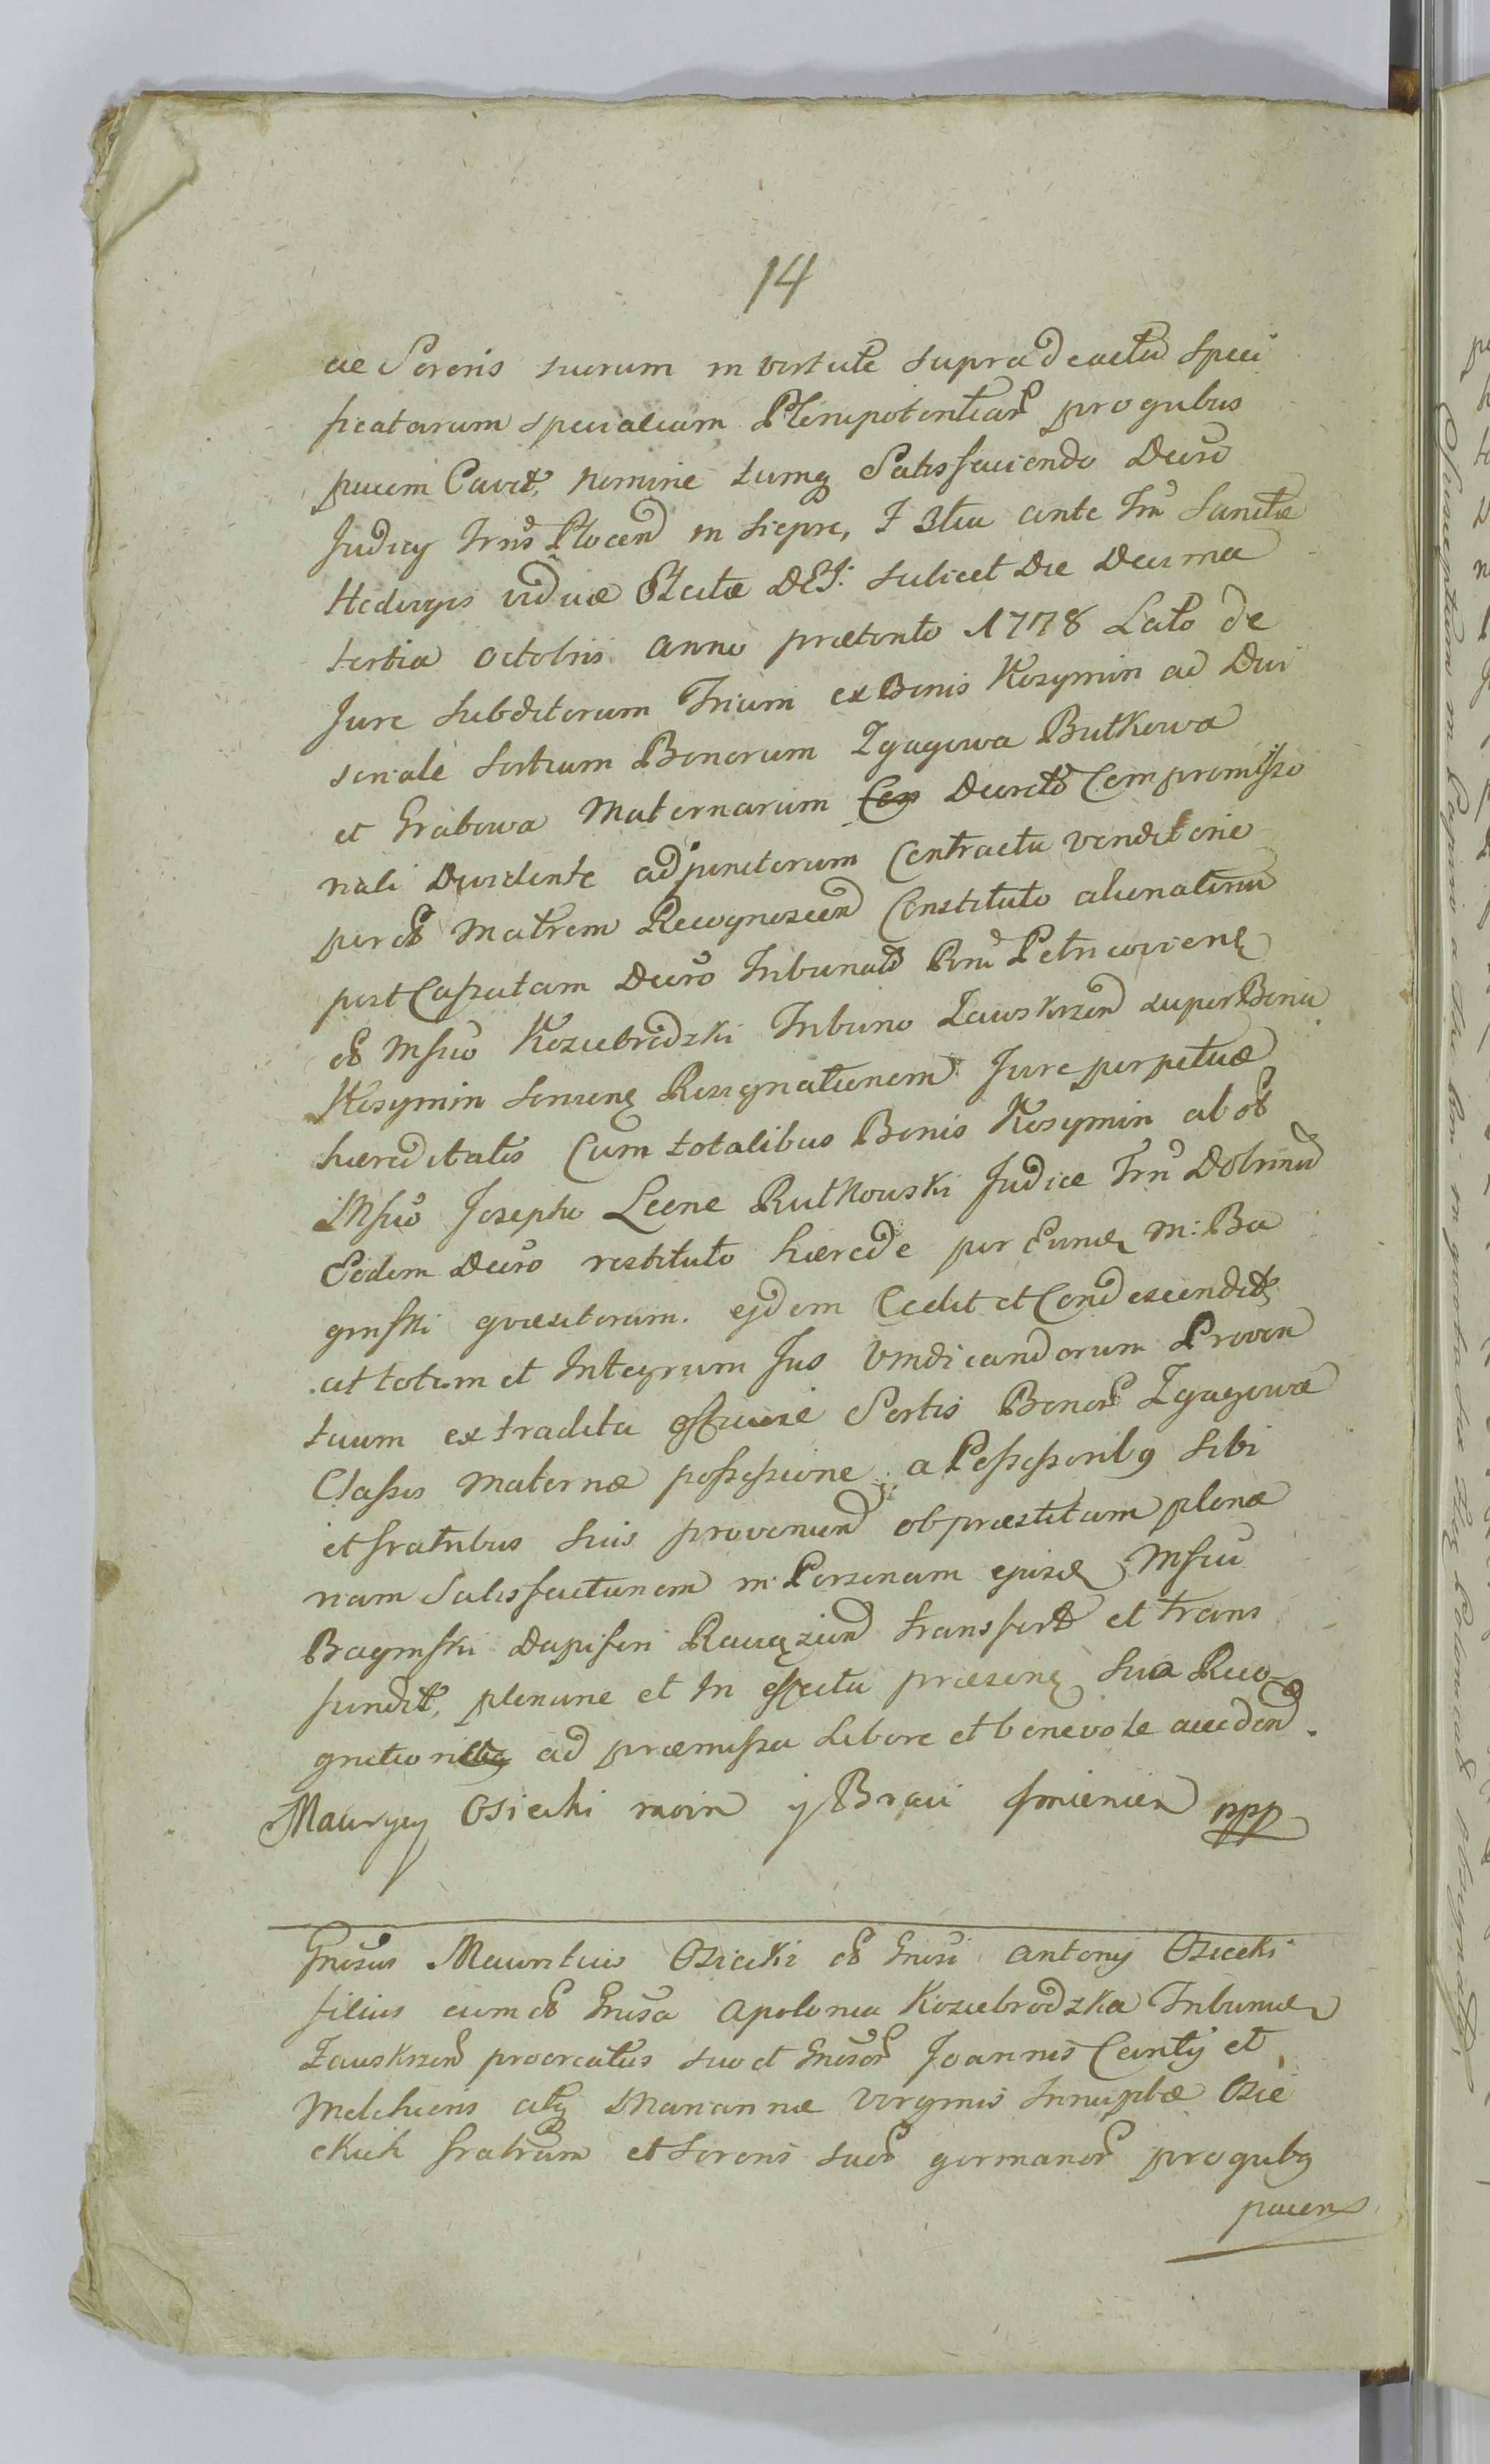 14
ac Sororis suorum in virtute supra de actu speci
ficatarum specialium Plenipotentiar pro quibus
pacem Cavet, nomine tumq Satisfaciendo Decro
Judicy Trris Plocen in Sieprc, F 3tia ante Fm Sanctæ
Hedvigis viduæ Electæ DEJ: scilicet Die Decima
tertia octobris anno prætento 1778 Lato de
Jure Subditorum Trium ex Bonis Kosymin ad Divi
sionale Sortium Bonorum Zgagowa Butkowa
et Grabowa Maternarum Decreto Compromisso
riali Dividente adjunctorum Contractu venditorio
per olt Matrem Recognoscen Constituto alienationu
post Cassatam Decro Tribunali Rni Petricoviens
olt Msco Koziebrodzki Tribuno Zawskrzen super Bona
Kosymin Serviens Resignationem Jure perpetuæ
hæreditatis Cum totalibus Bonis Kosymin ab olt
Msco Josepho Leone Rutkowski Judice Trri Dobrinen
Eodem Decro restituto hærede per Eund M: Ba
ginski quæsitorum. ejdem Cedit et Condescendit,
at totum et Integrum Jus Vindicandorum Proven
tuum extradita officiose Sortis Bonor Zgagowæ
Classis Maternæ possessione a Possessoribq Sibi
et fratribus suis provenien ob præstitam plena
riam Satisfactionem in Personam ejusd Msci
Baginski Dapiferi Raciązien transfert et trans
fundit, plenarie et In effectu præsens sua Reco
gnition ad præmissa libere et benevole acceden.
Maurycy Osiecki moim y Braci Imieniem mpp
Gnosus Mauritius Osiecki olt Gnosi Antonij Osiecki
filius cum olt Gnosa Apolonia Koziebrodzka Tribunid
Zawskrzen procreatus suo et Gnosor Joannis Cantij et
Melchioris atq Mariannæ Virginis Innuptæ Osie
ckich fratrum et Sororis suor germanor pro quibq
pacem